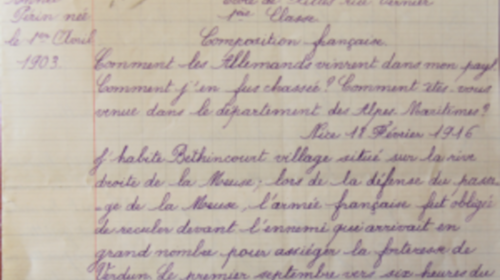 Périn née
le 1er Avril
1903.
École de Filles Rue Vernier
1ère Classe
Composition française.
Comment les Allemands vinrent dans mon pays.
Comment j'en fus chassée? Comment êtes-vous
venue dans le département des Alpes-Maritimes?
Nice 18 Février 1916
J'habite Béthincourt village situé sur la rive
droite de la Meuse; lors de la défense du passa
-ge de la Meuse, l'armée française fut obligée
de reculer devant l'ennemi qui arrivait en
grand nombre pour assiéger la forteresse de
Verdun. Le premier septembre vers six heures du